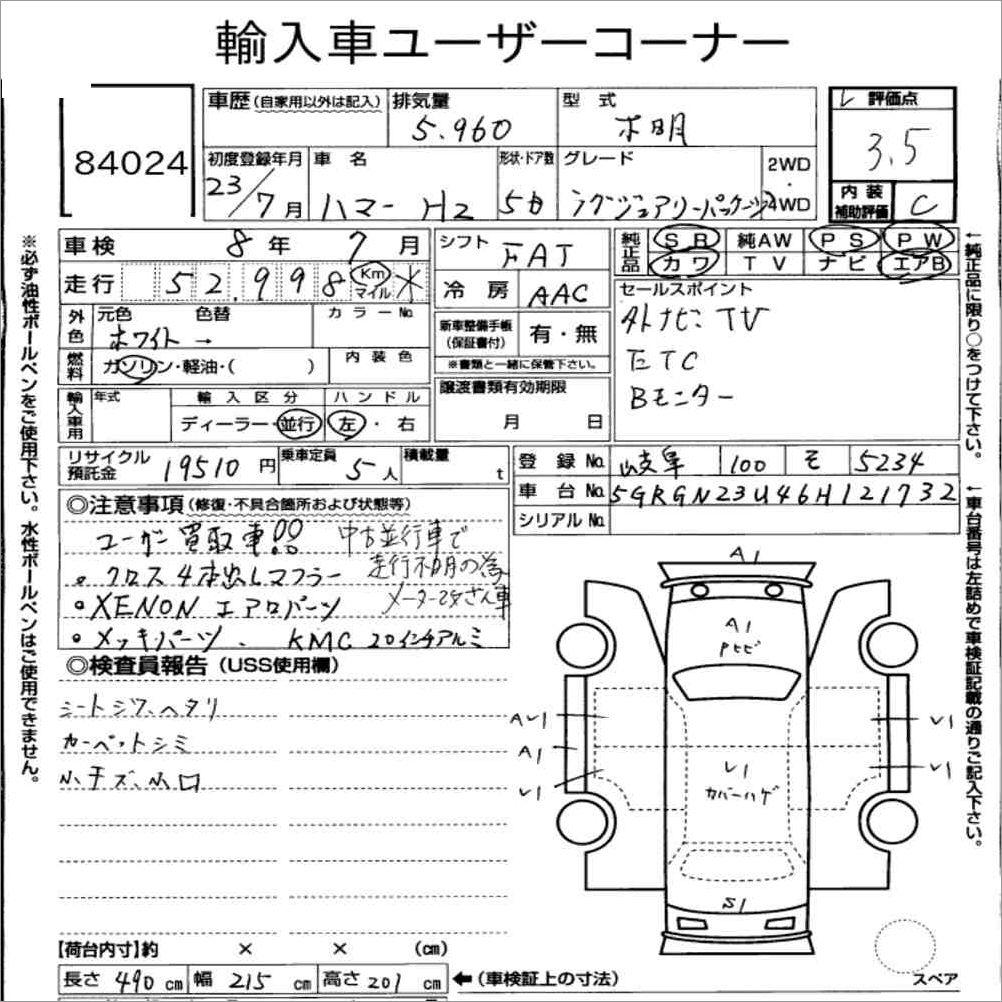 輸入車ユーザーコーナー
84024
車歴(自家用以外は記入) 排気量 5.960 型式 不明
レ 評価点 3.5
初度登録年月 23/7月 車名 ハマー H2 形状・ドア数 5 グレード ラグジュアリーパッケージ 2WD・4WD
内装補助評価 C
車検 8年 7月
走行 52,998 Km マイル ✕
シフト FAT
冷房 AAC
純正品 SR 純AW PS PW
カワ TV ナビ エアB
セールスポイント
外ナビ TV
ETC
Bモニター
外色 元色 色替 カラーNo.
ホワイト →
燃料 ガソリン・軽油・( ) 内装色
新車整備手帳(保証書付) 有・無
※書類と一緒に保管下さい。
譲渡書類有効期限
月 日
輸入車用 年式 輸入区分 ハンドル
ディーラー・並行 左・右
リサイクル預託金 19510円 乗車定員 5人 積載量 t
登録No. 岐阜 100 モ 5234
車台No. 5GRGN23U46H121732
シリアルNo.
◎注意事項(修復・不具合箇所および状態等)
ユーザー買取車!! 中古並行車で
・クロス4本出しマフラー 走行不明の為
・XENON エアロパーツ メーター
・メッキパーツ、 KMC 20インチアルミ
◎検査員報告(USS使用欄)
シートシワ、ヘタリ
カーペットシミ
小キズ、小凹
A1
A1
トビ
AU1
A1
U1
U1
カバーハゲ
U1
U1
S1
【荷台内寸】約 × × (cm)
長さ 490 cm 幅 215 cm 高さ 201 cm ←(車検証上の寸法)
スペア
※必ず油性ボールペンをご使用下さい。水性ボールペンはご使用できません。
←純正品に限り○をつけて下さい。
←車台番号は左詰めで車検証記載の通りご記入下さい。